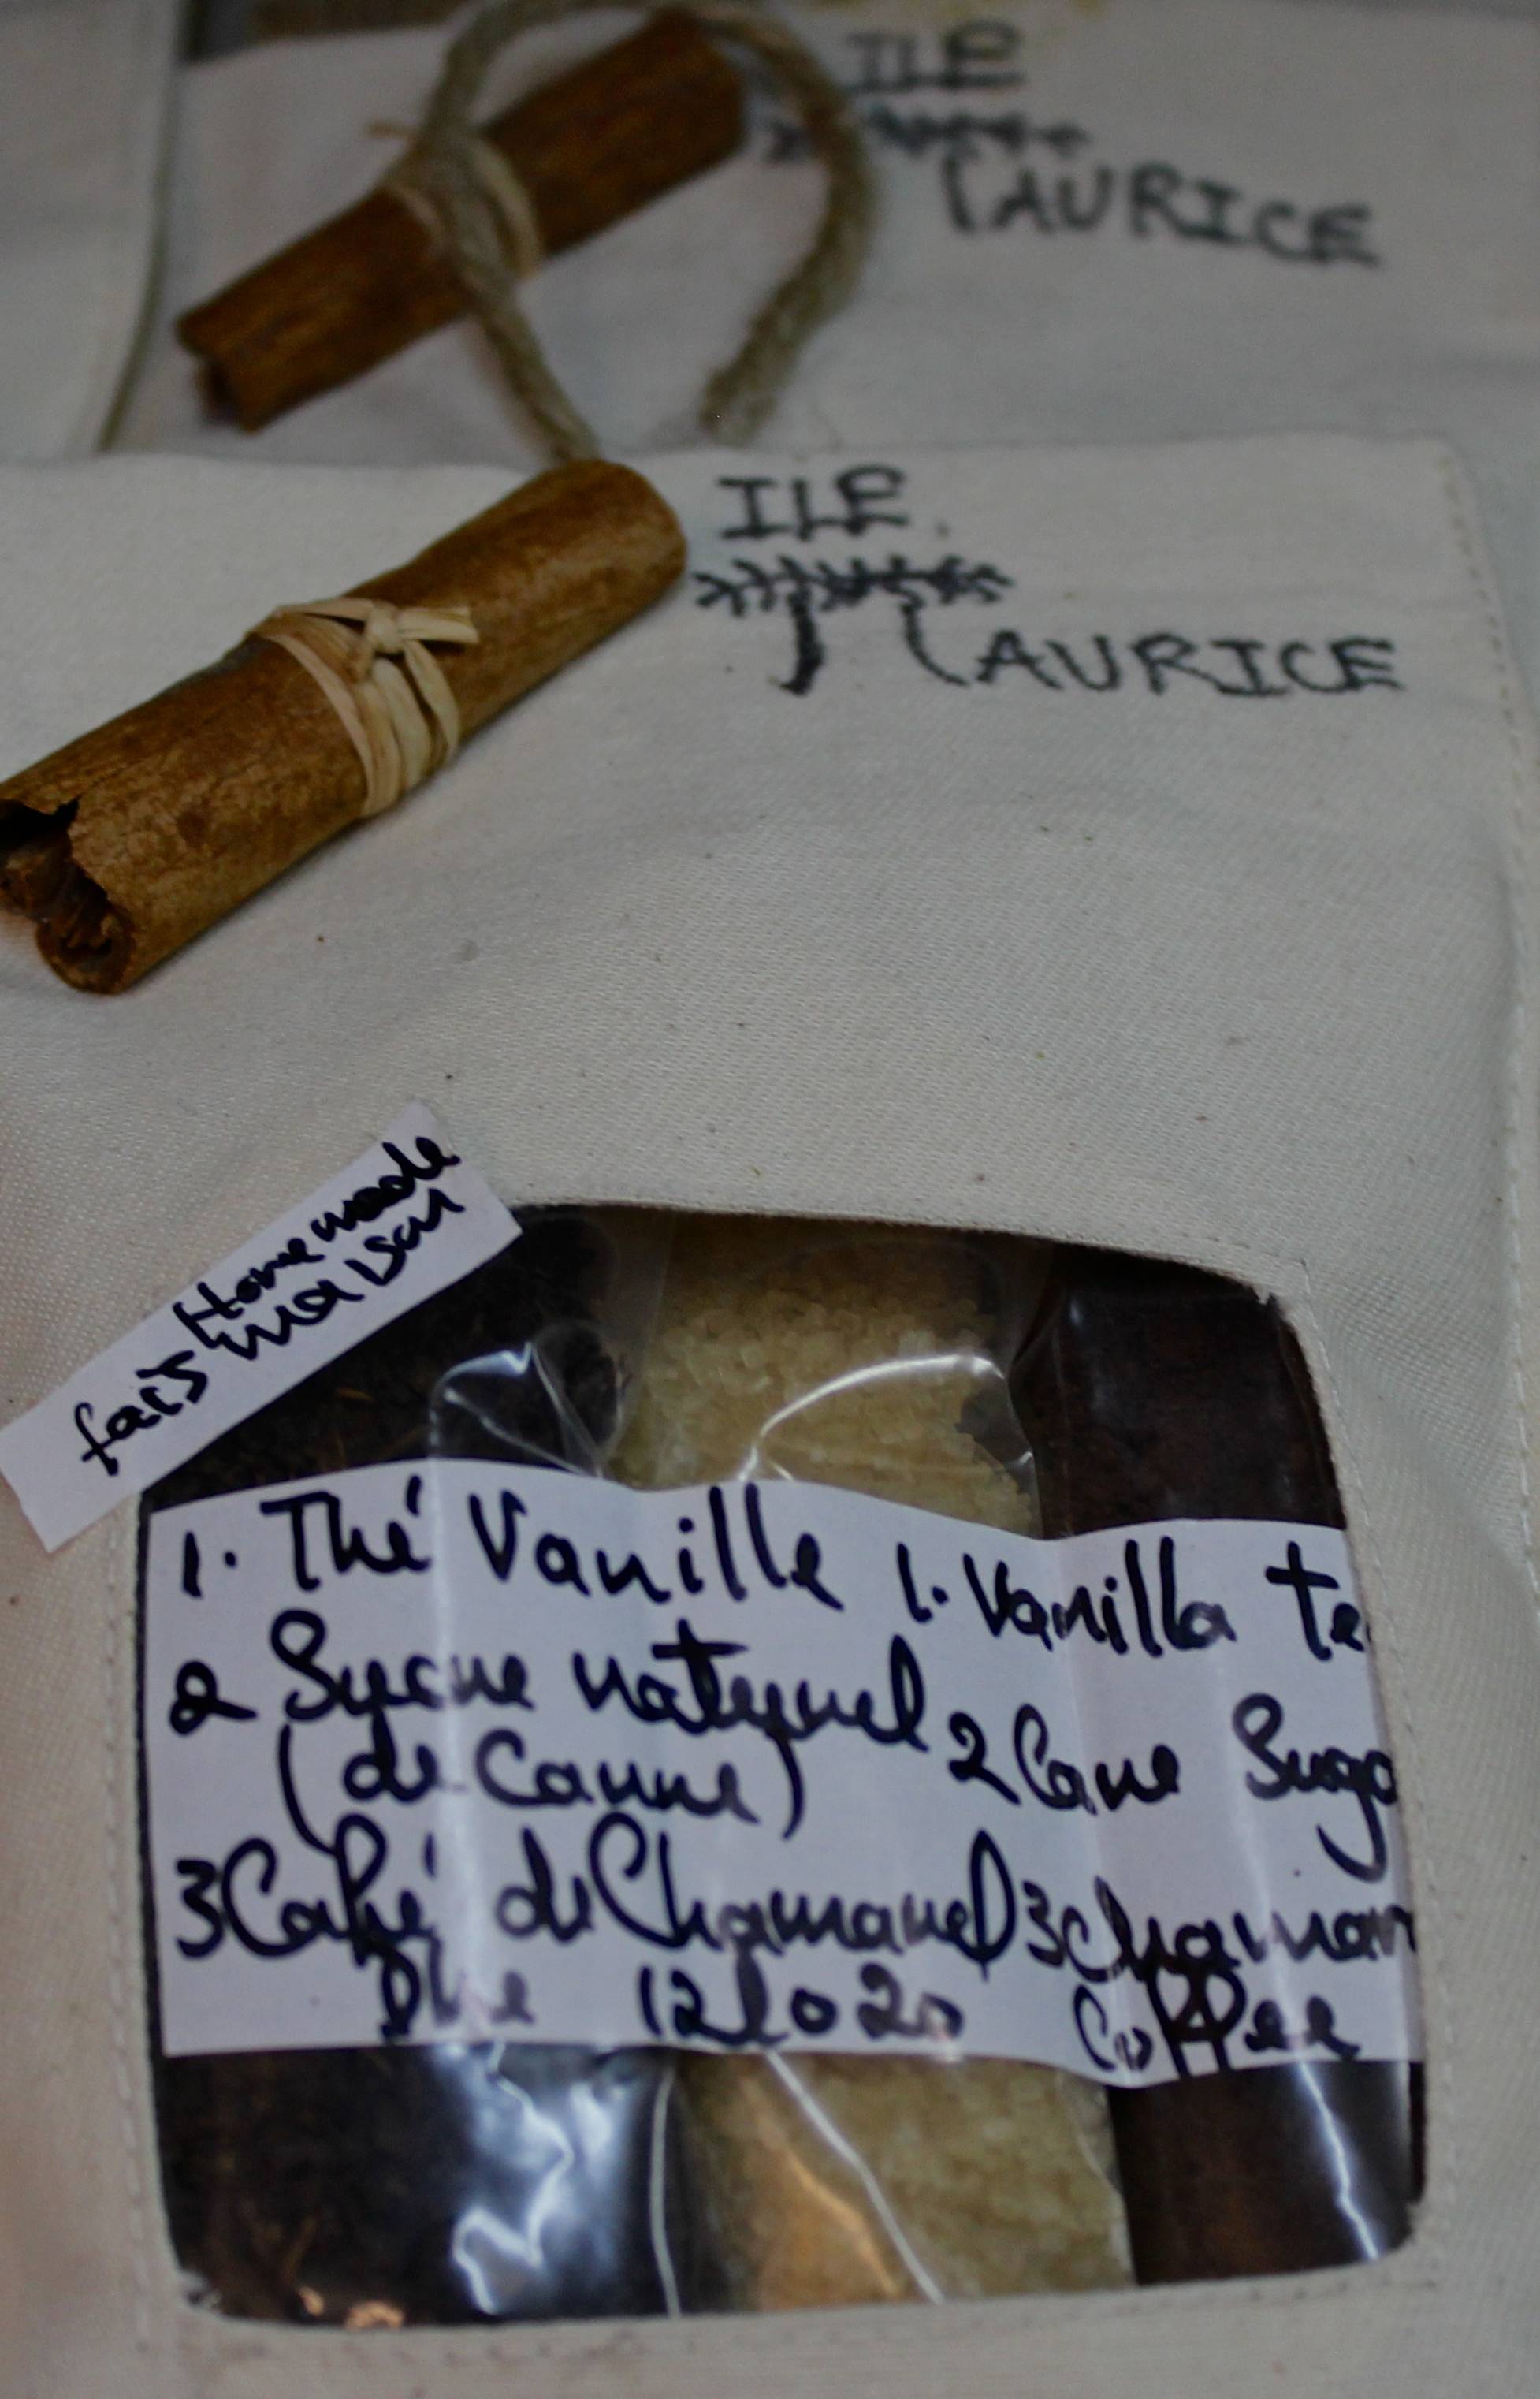 ILE
AURICE
ILE
AURICE
Homemade
fait maison
1. Thé Vanille
2 Sucre naturel
(de Canne)
3 Café de Chamarel
Due 12 2020
1. Vanilla te
2 Cane Suga
3 Chamar
Coffee